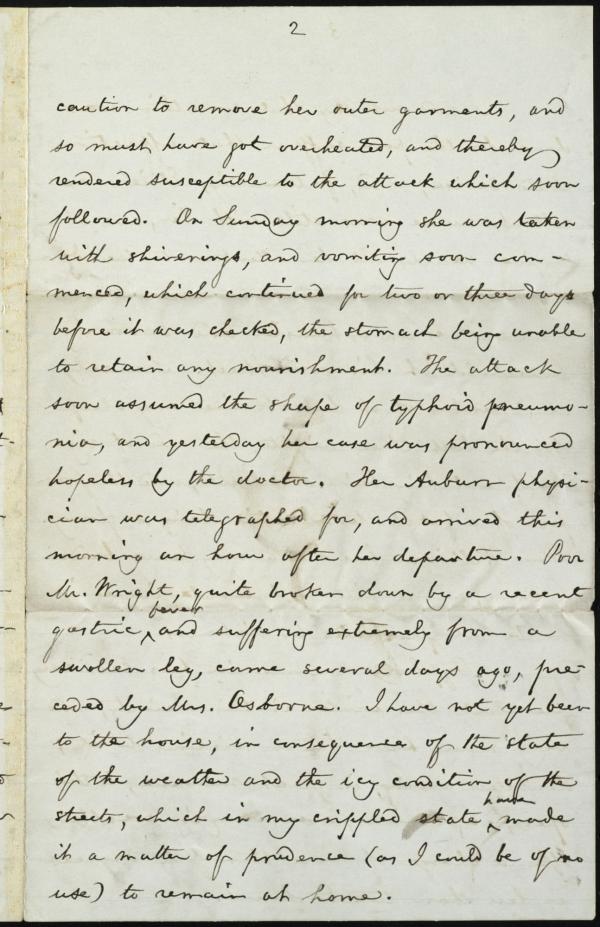 2
caution to remove her outer garments, and
so must have got overheated, and thereby
rendered susceptible to the attack which soon
followed. On Sunday morning she was taken
with shiverings, and vomiting soon com-
menced, which continued for two or three days
before it was checked, the stomach being unable
to retain any nourishment. The attack
soon assumed the shape of typhoid pneumo-
nia, and yesterday her case was pronounced
hopeless by the doctor. Her Auburn physi-
cian was telegraphed for, and arrived this
morning an hour after her departure. Poor
Mr. Wright, quite broken down by a recent
fever
gastric ‸ and suffering extremely from a
swollen leg, came several days ago, pre-
ceded by Mrs. Osborne. I have not yet been
to the house, in consequence of the state
of the weather and the icy condition of the
have
streets, which in my crippled state ‸ made
it a matter of prudence (as I could be of no
use) to remain at home.